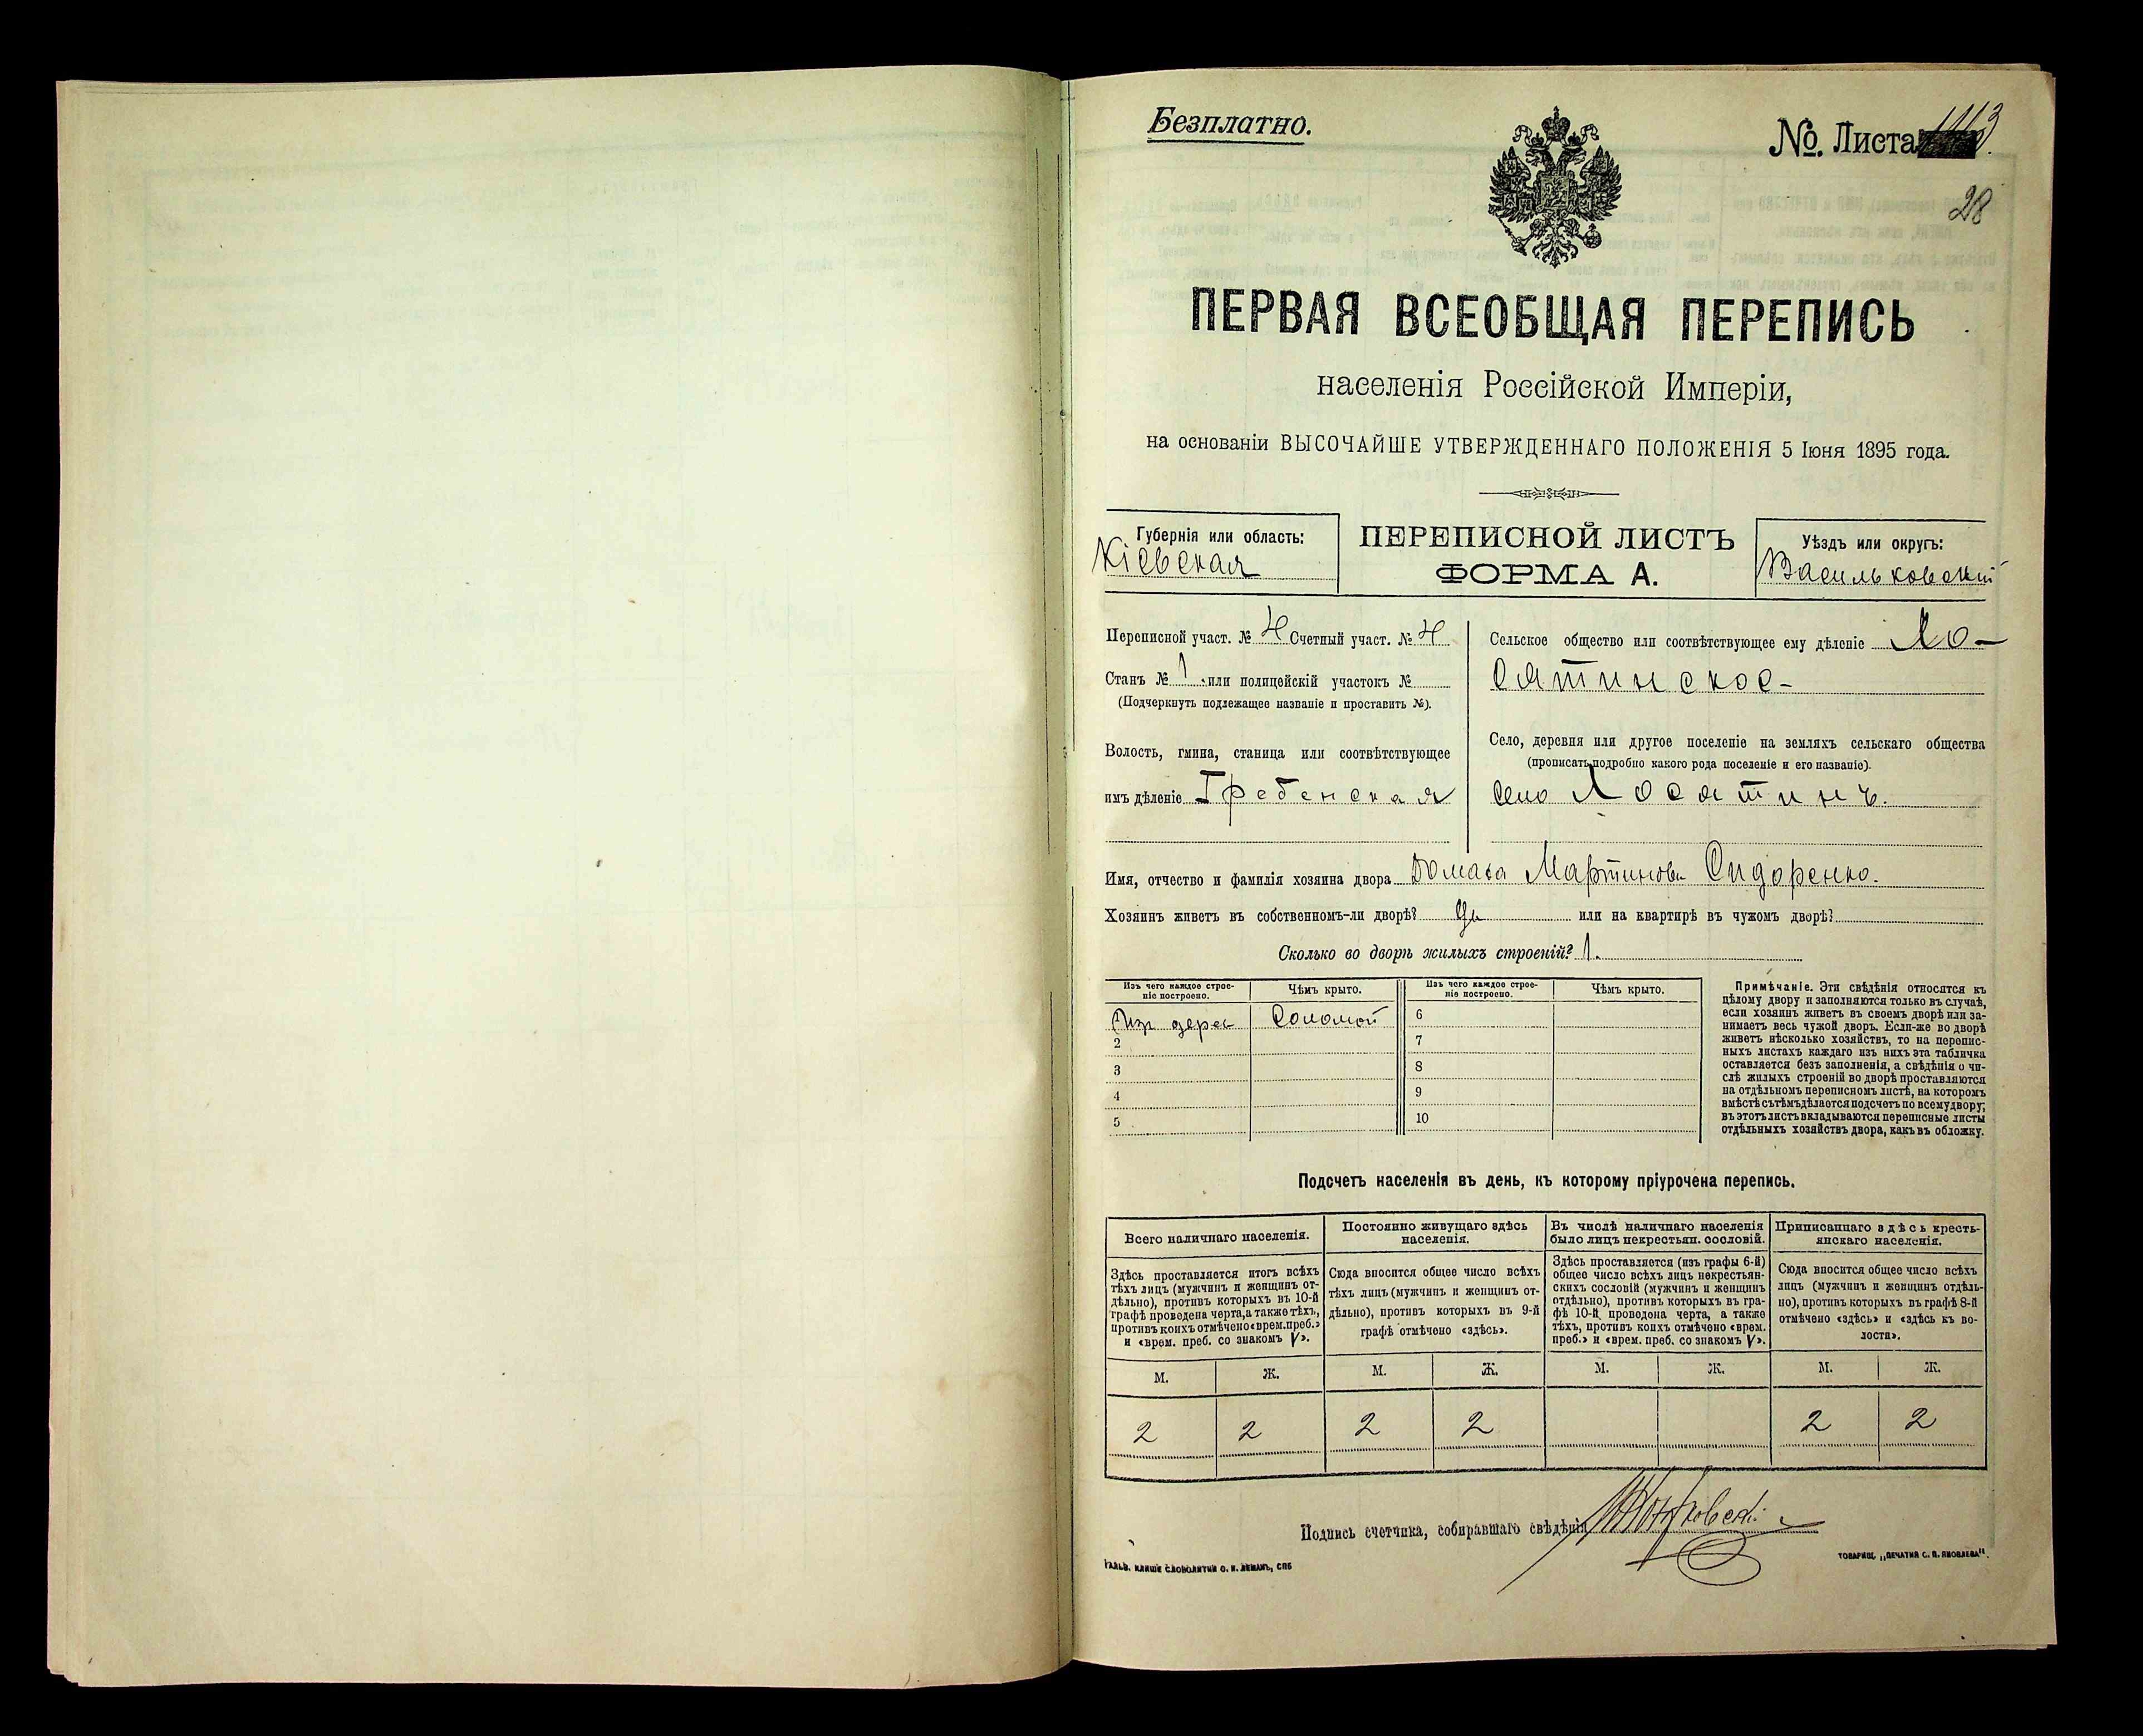 Безплатно.
№. Листа 1113.
28
ПЕРВАЯ ВСЕОБЩАЯ ПЕРЕПИСЬ
населенія Россійской Имперіи,
на основаніи ВЫСОЧАЙШЕ УТВЕРЖДЕННАГО ПОЛОЖЕНІЯ 5 Іюня 1895 года.
Губернія или область:
Кіевская
ПЕРЕПИСНОЙ ЛИСТЪ
ФОРМА А.
Уѣздъ или округъ:
Васильковскій
Переписной участ. № 4 Счетный участ. № 4
Станъ № 1 или полицейскій участокъ №
(Подчеркнуть подлежащее названіе и проставить №).
Волость, гмина, станица или соотвѣтствующее
имъ дѣленіе Гребенская
Сельское общество или соотвѣтствующее ему дѣленіе Ло-
сятинское-
Село, деревня или другое поселеніе на земляхъ сельскаго общества
(прописать подробно какого рода поселеніе и его названіе).
село Лосятинъ.
Имя, отчество и фамилія хозяина двора Домаха Мартинова Сидоренко.
Хозяинъ живетъ въ собственномъ-ли дворѣ? Да или на квартирѣ въ чужомъ дворѣ?
Сколько во дворѣ жилыхъ строеній? 1.
Изъ чего каждое строе-
ніе построено.
Чѣмъ крыто.
Изъ чего каждое строе-
ніе построено.
Чѣмъ крыто.
Изъ дерев Соломой 6
2 7
3 8
4 9
5 10
Примѣчаніе. Эти свѣдѣнія относятся къ
цѣлому двору и заполняются только въ случаѣ,
если хозяинъ живетъ въ своемъ дворѣ или за-
нимаетъ весь чужой дворъ. Если-же во дворѣ
живетъ нѣсколько хозяйствъ, то на перепис-
ныхъ листахъ каждаго изъ нихъ эта табличка
оставляется безъ заполненія, а свѣдѣнія о чи-
слѣ жилыхъ строеній во дворѣ проставляются
на отдѣльномъ переписномъ листѣ, на которомъ
вмѣстѣ съ тѣмъ дѣлается подсчетъ по всему двору;
въ этотъ листъ вкладываются переписные листы
отдѣльныхъ хозяйствъ двора, какъ въ обложку.
Подсчетъ населенія въ день, къ которому пріурочена перепись.
Всего наличнаго населенія.
Здѣсь проставляется итогъ всѣхъ
тѣхъ лицъ (мужчинъ и женщинъ от-
дѣльно), противъ которыхъ въ 10-й
графѣ проведена черта, а также тѣхъ,
противъ коихъ отмѣчено «врем. преб.»
и «врем. преб. со знакомъ V».
Постоянно живущаго здѣсь
населенія.
Сюда вносится общее число всѣхъ
тѣхъ лицъ (мужчинъ и женщинъ от-
дѣльно), противъ которыхъ въ 9-й
графѣ отмѣчено «здѣсь».
Въ числѣ наличнаго населенія
было лицъ некрестьян. сословій.
Здѣсь проставляется (изъ графы 6-й)
общее число всѣхъ лицъ некрестьян-
скихъ сословій (мужчинъ и женщинъ
отдѣльно), противъ которыхъ въ гра-
фѣ 10-й проведена черта, а также
тѣхъ, противъ коихъ отмѣчено «врем.
преб.» и «врем. преб. со знакомъ V».
Приписаннаго здѣсь кресть-
янскаго населенія.
Сюда вносится общее число всѣхъ
лицъ (мужчинъ и женщинъ отдѣль-
но), противъ которыхъ въ графѣ 8-й
отмѣчено «здѣсь» и «здѣсь въ во-
лости».
М. Ж. М. Ж. М. Ж. М. Ж.
2 2 2 2 2 2
Подпись счетчика, собиравшаго свѣдѣнія
ГАЛЬВ. КЛИШЕ СЛОВОЛИТНИ О. И. ЛЕМАНЪ, СПБ
ТОВАРИЩ. „ПЕЧАТНЯ С. П. ЯКОВЛЕВА".